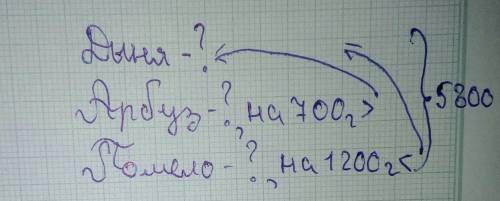 Дыня - ?
Арбуз - ?, на 700г >
Помело - ?, на 1200г <
5800